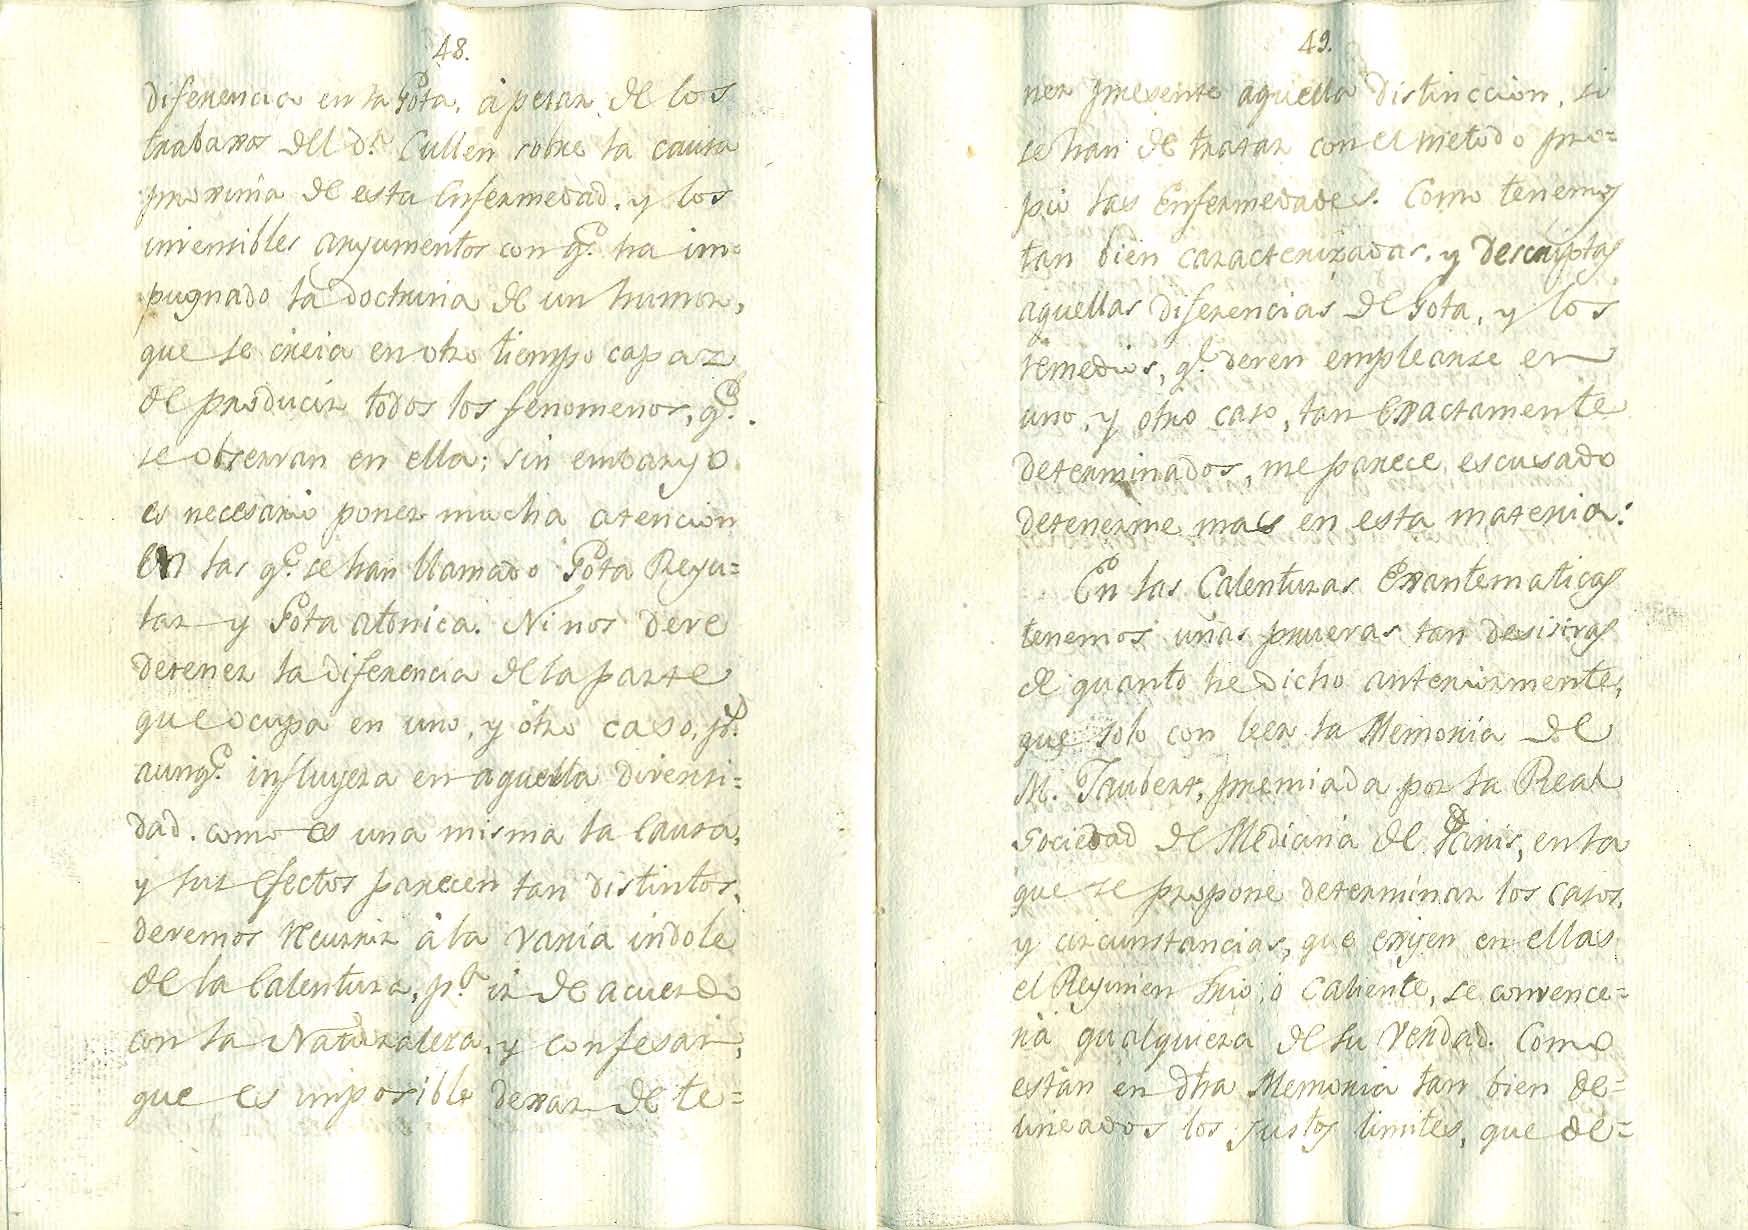 48.
diferencia en la Gota, à pesar de los
trabaxos del Dr. Cullen sobre la causa
proxima de esta Enfermedad, y los
invensibles argumentos con q.e ha im-
pugnado la doctrina de un humor,
que se creia en otro tiempo capaz
de producir todos los fenomenos, q.e
se observan en ella; sin embargo
es necesario poner mucha atencion
En las q.e se han llamado Gota Regu=
lar y Gota atonica. Ni nos deve
detener la diferencia de la parte
que ocupa en uno, y otro caso, p.r
aunq.e influyera en aquella diversi=
dad. como es una misma la Causa,
y sus efectos parecen tan distintos,
devemos recurrir à la varia indole
de la Calentura, p.a ir de acuerdo
con la Naturaleza, y confesar,
que es imposible dexar de te=
49.
ner presente aquella distinccion, si
se han de tratar con el metodo pro=
pio las Enfermedades. Como tenemos
tan bien caracterizadas, y descriptas
aquellas diferencias de Gota, y los
remedios, q.e deven emplearse en
uno, y otro caso, tan exactamente
determinados, me parece escusado
detenerme mas en esta materia.
En las Calenturas Exantematicas
tenemos unas pruevas tan desisivas
de quanto he dicho anteriormente,
que solo con leer la Memoria de
M. Jaubert, premiada por la Real
Sociedad de Medicina de Paris, en la
que se propone determinar los casos,
y circunstancias, que exijen en ellas
el Regimen frio, o caliente, se convence=
rà qualquiera de su verdad. Como
estàn en dha Memoria tan bien de=
lineados los justos limites, que de=